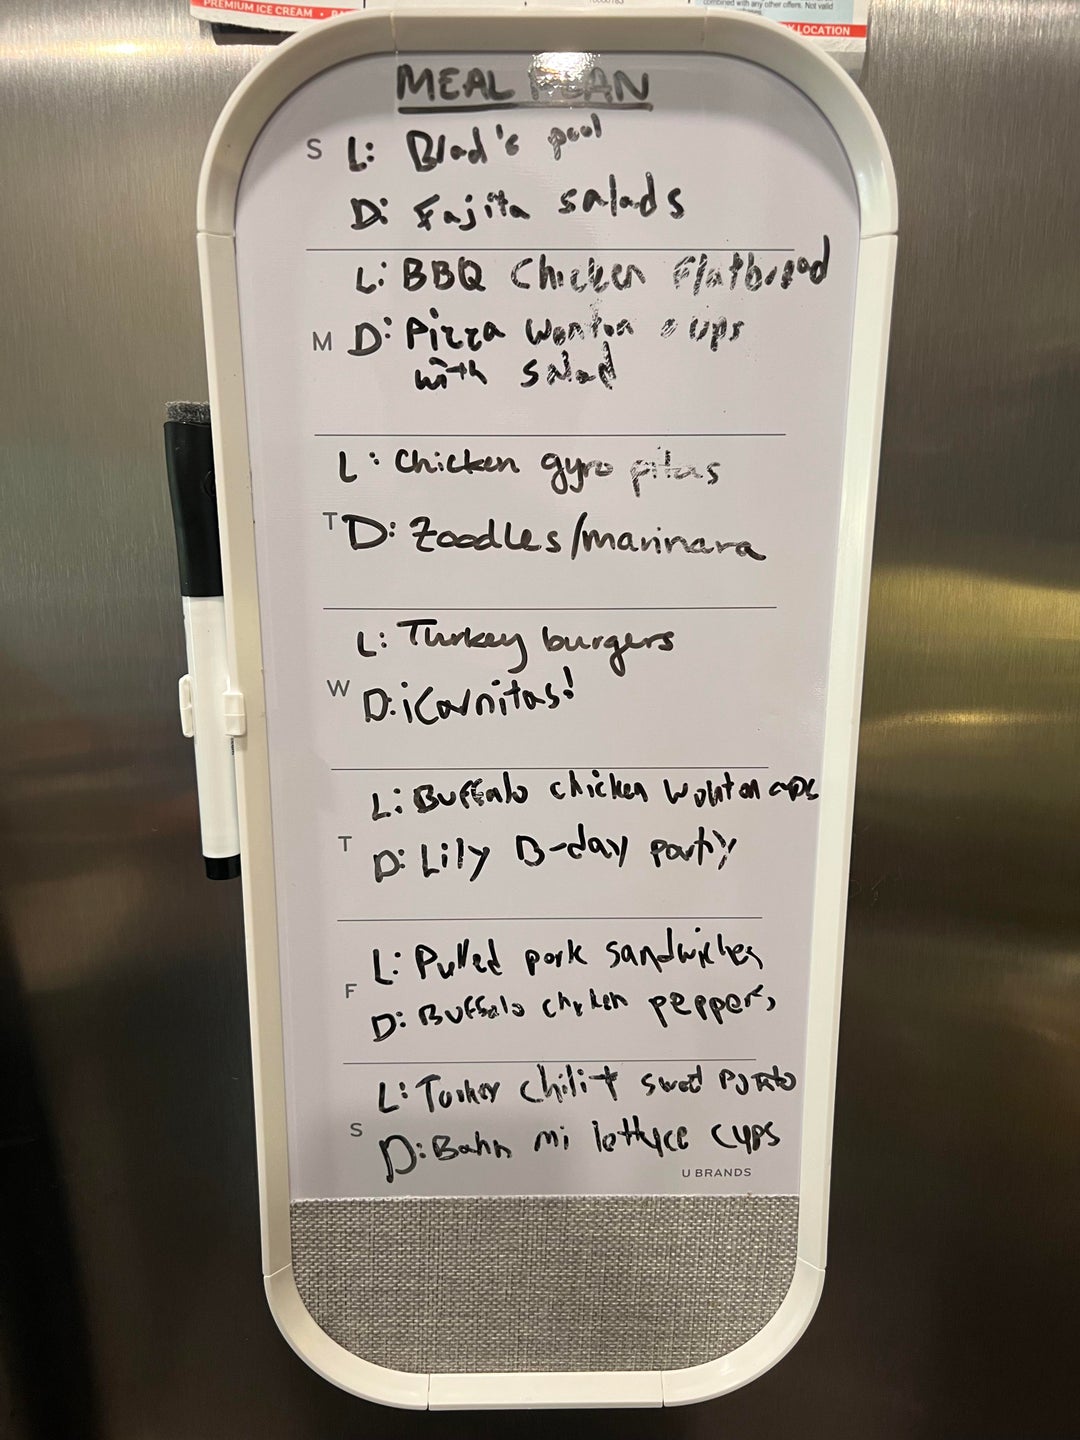 PREMIUM ICE CREAM •
combined with any other offers. Not valid
LOCATION
MEAL PLAN
S L: Blad's pool
D: Fajita salads
L: BBQ Chicken Flatbread
M D: Pizza wonton cups
with salad
L: Chicken gyro pitas
T D: Zoodles/marinara
L: Turkey burgers
W D: ¡Carnitas!
L: Buffalo chicken wonton cups
T D: Lily B-day party
L: Pulled pork sandwiches
F D: Buffalo chicken peppers
L: Turkey chili + sweet potato
S D: Bahn mi lettuce cups
U BRANDS